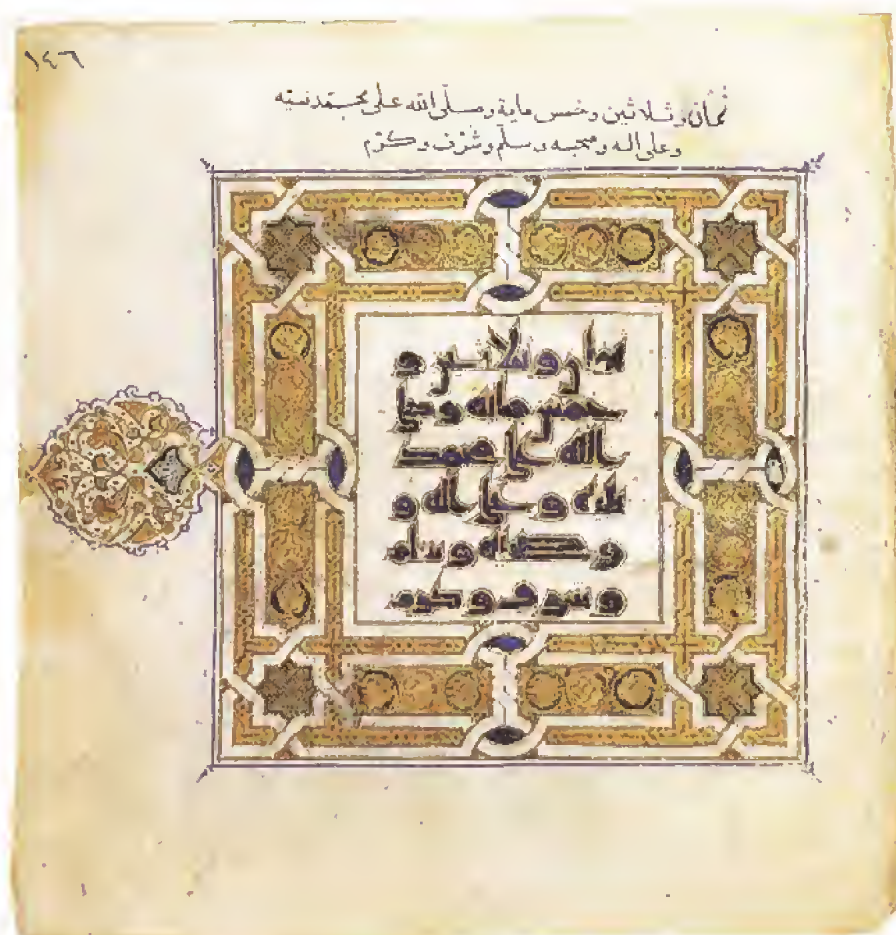 ١٤٦
ثمان وثلاثين وخمس ماية وصلّى الله على محمد نبيّه
وعلى اله وصحبه وسلّم وشرّف وكرّم
ثمان وثلاثين و
خمس مائة وصلى
الله على محمد
نبيه وعلى اله و
وصحبه وسلم
وشرف وكرم